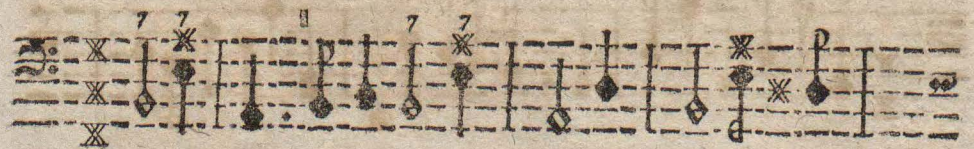 7 7 7 7